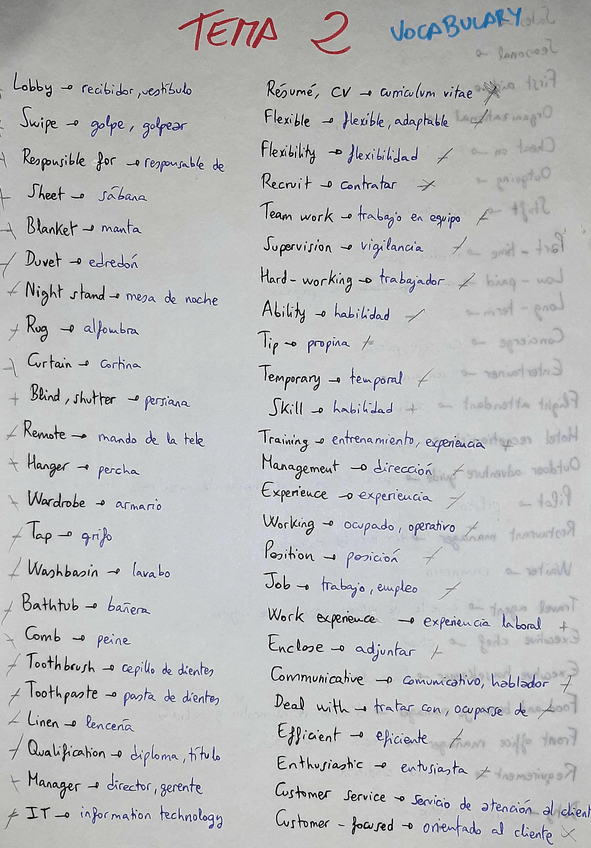 TEMA 2 VOCABULARY
Lobby → recibidor, vestíbulo
Swipe → golpe, golpear
Responsible for → responsable de
Sheet → sábana
Blanket → manta
Duvet → edredón
Night stand → mesa de noche
Rug → alfombra
Curtain → cortina
Blind, shutter → persiana
Remote → mando de la tele
Hanger → percha
Wardrobe → armario
Tap → grifo
Washbasin → lavabo
Bathtub → bañera
Comb → peine
Toothbrush → cepillo de dientes
Toothpaste → pasta de dientes
Linen → lencería
Qualification → diploma, título
Manager → director, gerente
IT → information technology
Résumé, CV → curriculum vitae
Flexible → flexible, adaptable
Flexibility → flexibilidad
Recruit → contratar
Team work → trabajo en equipo
Supervision → vigilancia
Hard-working → trabajador
Ability → habilidad
Tip → propina
Temporary → temporal
Skill → habilidad
Training → entrenamiento, experiencia
Management → dirección
Experience → experiencia
Working → ocupado, operativo
Position → posición
Job → trabajo, empleo
Work experience → experiencia laboral
Enclose → adjuntar
Communicative → comunicativo, hablador
Deal with → tratar con, ocuparse de
Efficient → eficiente
Enthusiastic → entusiasta
Customer service → servicio de atención al client
Customer-focused → orientado al cliente